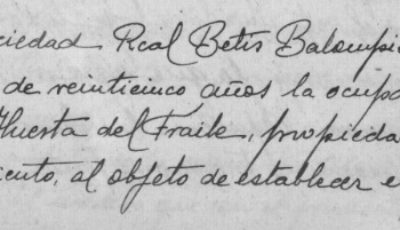 ciedad Real Betis Balompié
de veinticinco años la ocupa
Huerta del Fraile, propieda
iento, al objeto de establecer e